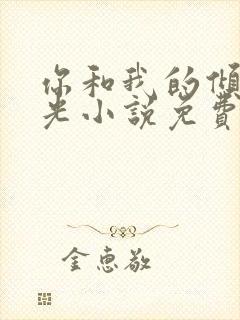 你和我的倾
光小说免费
金惠敬